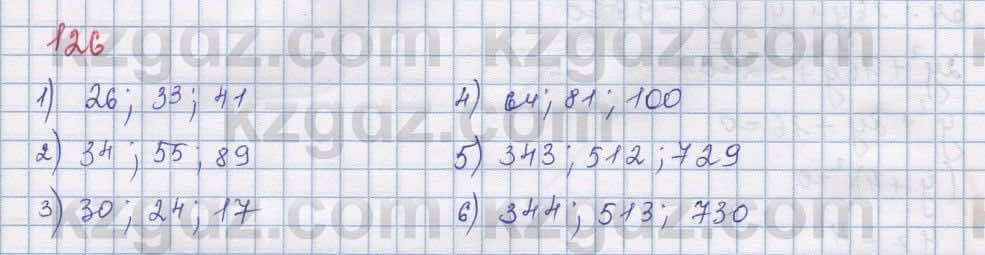 126
1) 26; 33; 41
2) 34; 55; 89
3) 30; 24; 17
4) 64; 81; 100
5) 343; 512; 729
6) 344; 513; 730
kzgdz.com kzgdz.com
kzgdz.com
kzgdz.com kzgdz.com